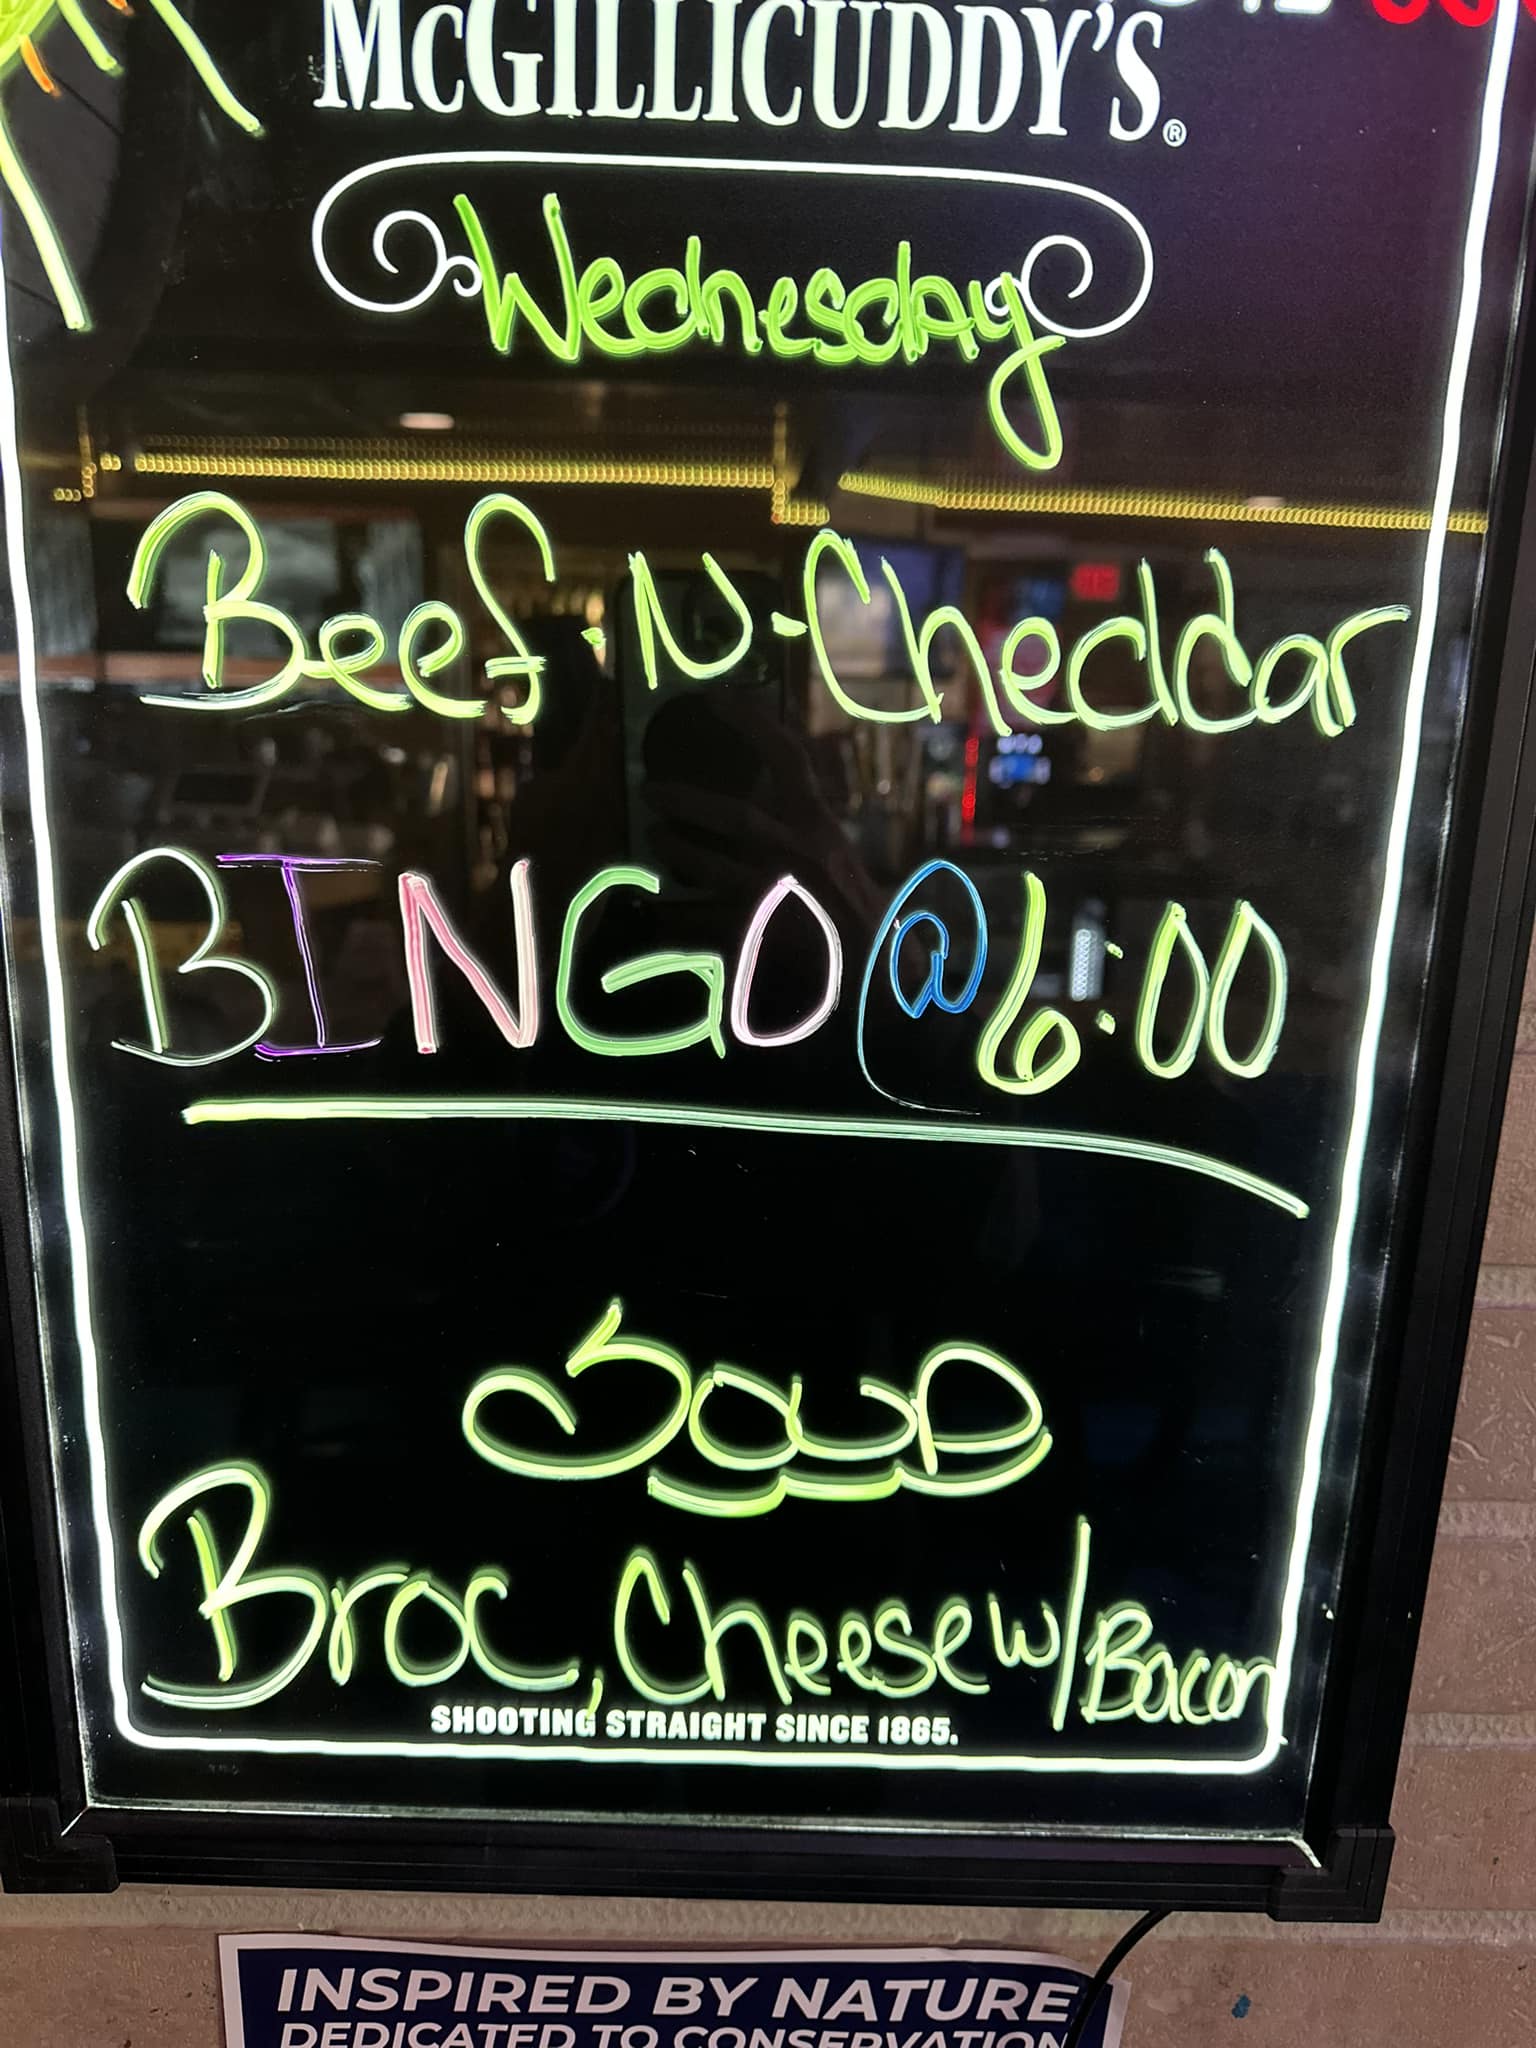 McGILLICUDDY'S®
Wednesday
Beef-N-Cheddar
BINGO @ 6:00
Soup
Broc, Cheese w/Bacon
SHOOTING STRAIGHT SINCE 1865.
INSPIRED BY NATURE
DEDICATED TO CONSERVATION